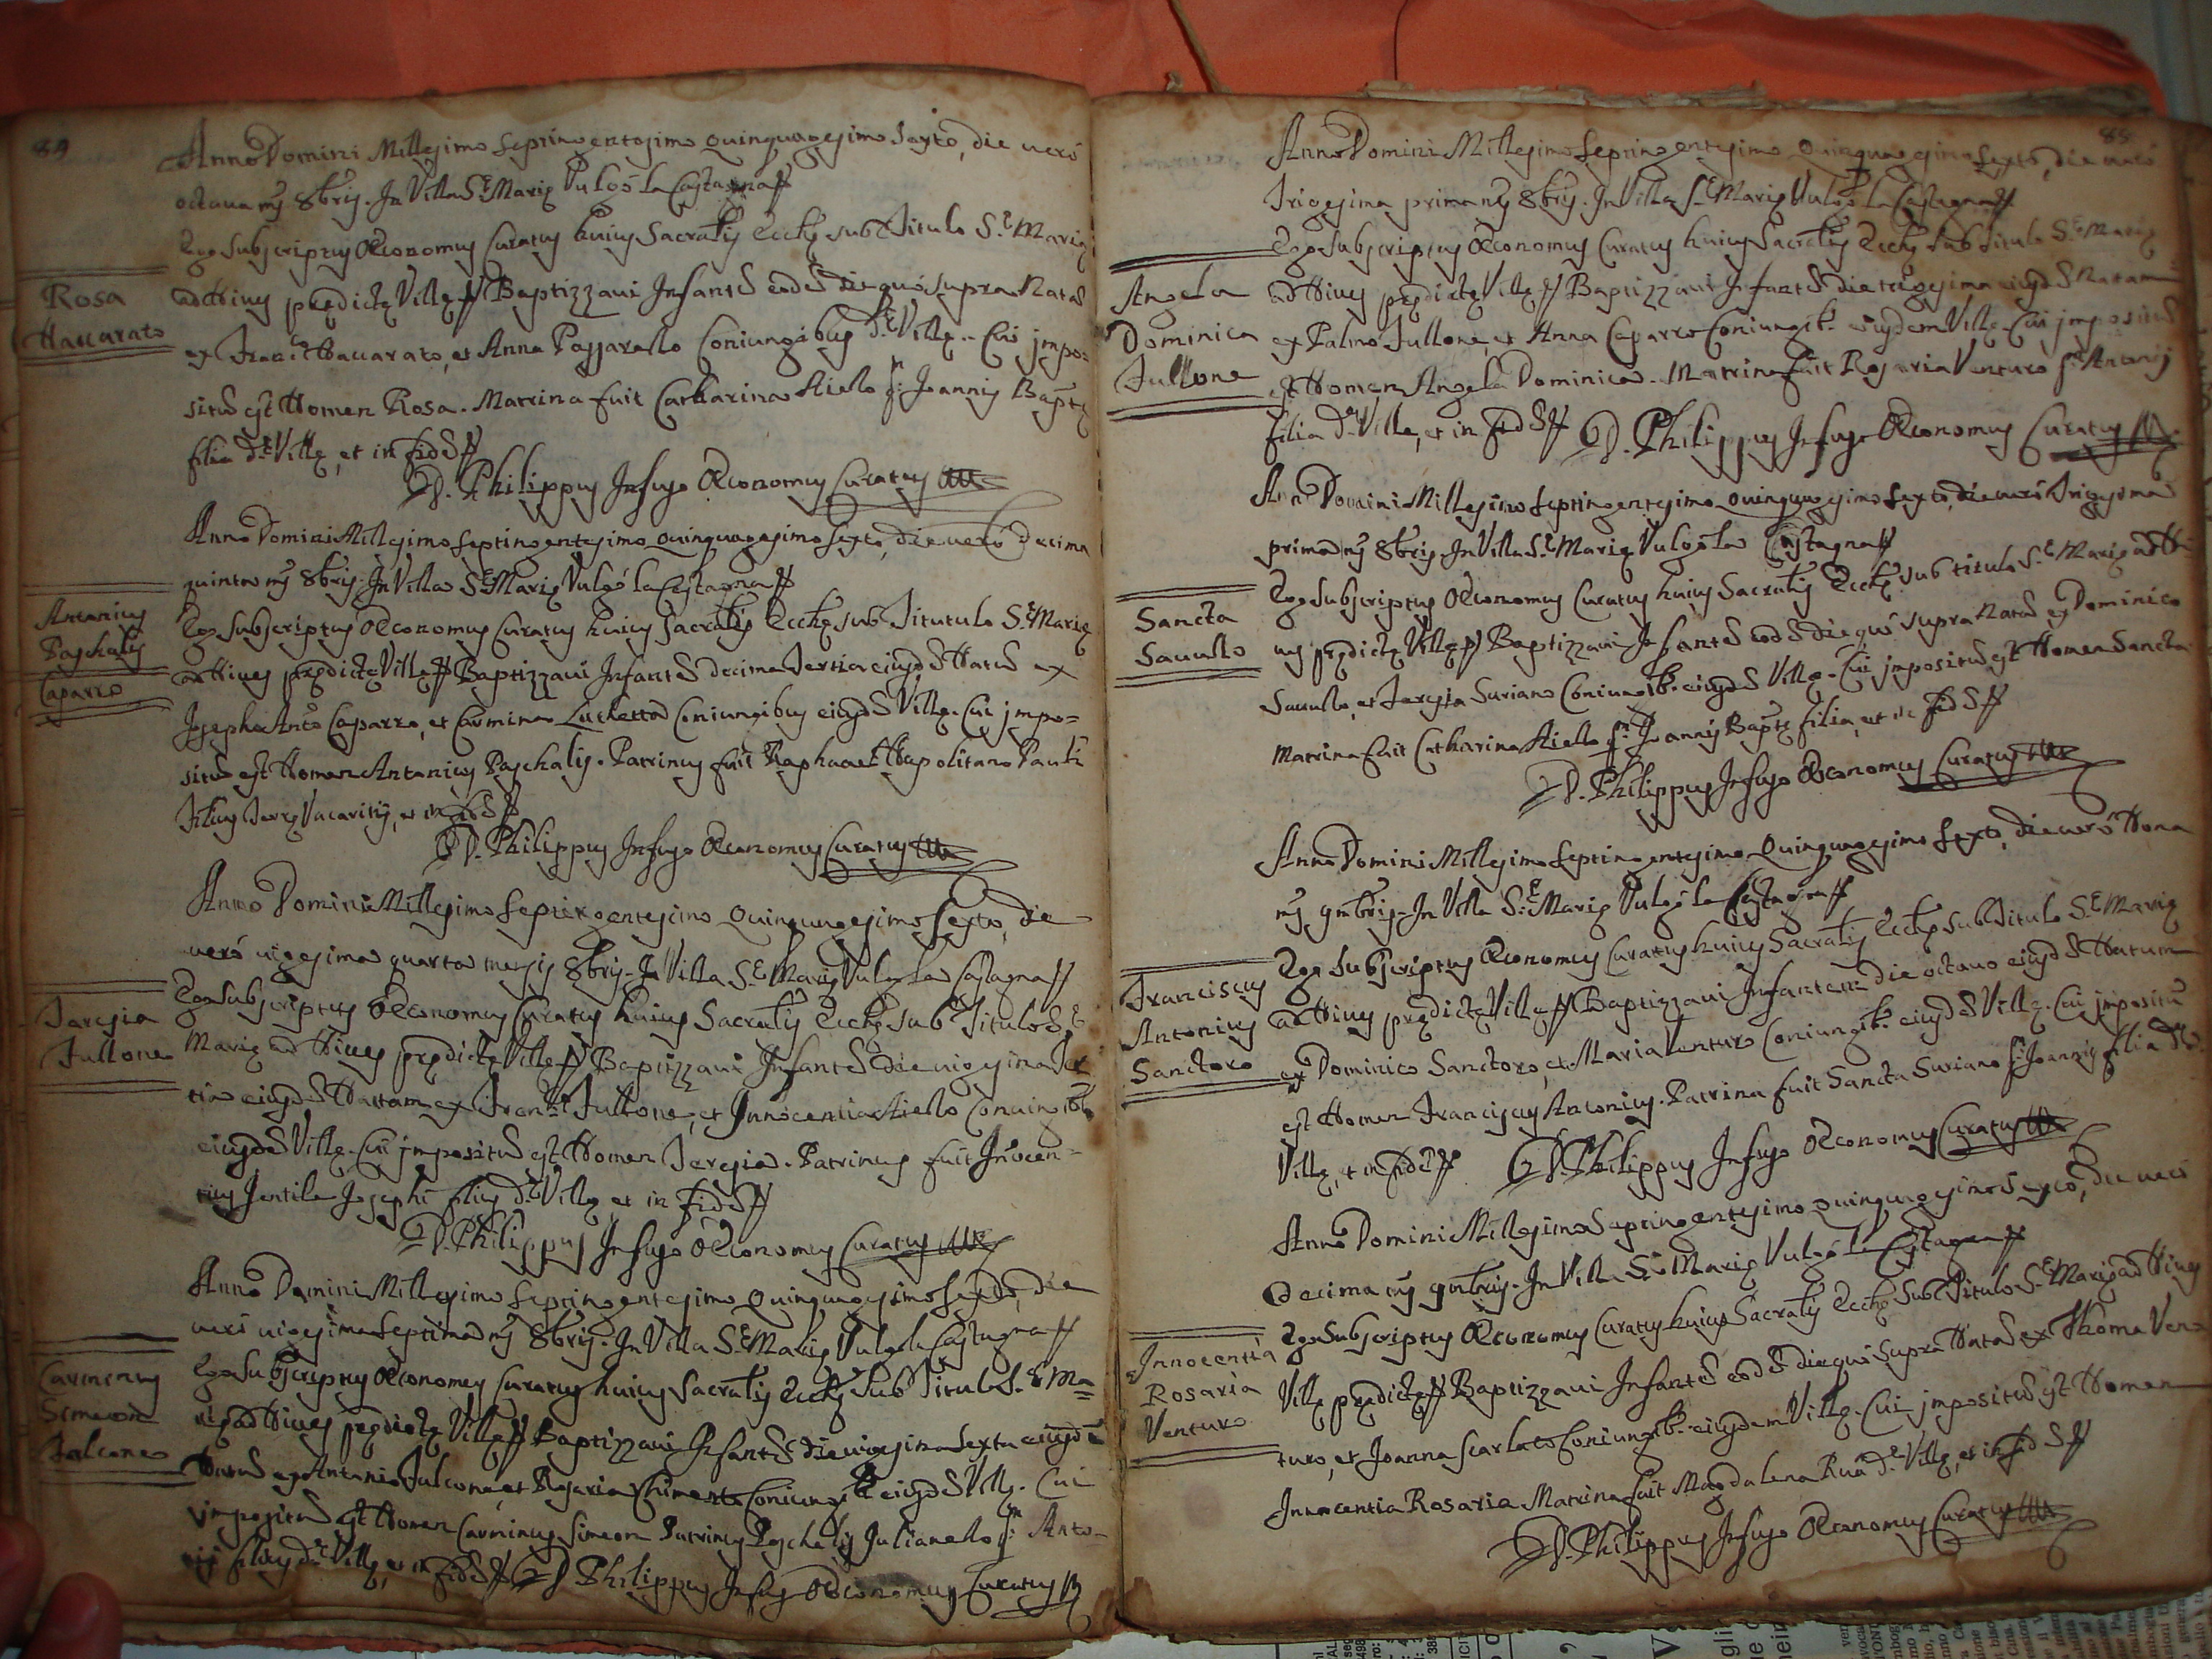 84
Anno Domini Millesimo Septingentesimo Quinquagesimo Sexto, die verò
octava ms̃ 8bris. In Villa S.ę Marię Vulgò la Castagna
Ego Subscriptus Œconomus Curatus huius Sacratis Eccłę sub Titulo S.ę Marię
ad Nives prędictę Villę Baptizzavi Infantē eodē die quò supra Natā
ex Fran.co Naccarato, et Anna Pazzarello Coniugibus d.ę Villę. Cui impo=
situm est Nomen Rosa. Matrina fuit Catharina Aiello q.m Joannis Baptę
filia d.ę Villę, et in Fidē
D. Philippus Infuso Œconomus Curatus
Rosa
Naccarato
Anno Domini Millesimo Septingentesimo Quinquagesimo Sexto, die verò Decima
quinta ms̃ 8bris. In Villa S.ę Marię Vulgò la Castagna
Ego Subscriptus Œconomus Curatus huius Sacratis Eccłę sub Titutulo S.ę Marię
ad Nives prędictę Villę Baptizzavi Infantē decima Tertia eiusdē Natū ex
Josepho Ant.o Caparro, et Carmina Luchetta Coniugibus eiusdē Villę. Cui impo=
situm est Nomen Antonius Paschalis. Patrinus fuit Raphael Napolitano Pauli
Filius Terrę Vacaritij, et in Fidē
D. Philippus Infuso Œconomus Curatus
Antonius
Paschalis
Caparro
Anno Domini Millesimo Septingentesimo Quinquagesimo Sexto, die
verò vigesima quarta mensis 8bris. In Villa S.ę Marię Vulgò la Castagna
Ego Subscriptus Œconomus Curatus huius Sacratis Eccłę sub Titulo S.ę
Marię ad Nives prędictę Villę Baptizzavi Infantē die vigesima Ter
tia eiusdē Natam ex Fran.co Fullone, et Innocentia Aiello Coniugib.
eiusdē Villę. Cui impositū est Nomen Teresia. Patrinus fuit Inocen=
tius Gentile Josephi filius d.ę Villę, et in Fidē
D. Philippus Infuso Œconomus Curatus
Teresia
Fullone
Anno Domini Millesimo Septingentesimo Quinquagesimo Sexto, die
verò vigesima Septima ms̃ 8bris. In Villa S.ę Marię Vulgò la Castagna
Ego Subscriptus Œconomus Curatus huius Sacratis Eccłę sub Titulo S.ę Ma=
rię ad Nives prędictę Villę Baptizzavi Infantē die vigesima Sexta eiusdē
Natū ex Antonio Falcone, et Rosaria Chimento Coniugib. eiusdē Villę. Cui
impositū est Nomen Carminus Simeon Patrinus Paschalis Julianello q.m Anto=
nij filius d.ę Villę, et in Fidē D. Philippus Infuso Œconomus Curatus
Carminus
Simeon
Falcone
85
Anno Domini Millesimo Septingentesimo Quinquagesimo Sexto, die verò
Trigesima prima ms̃ 8bris. In Villa S.ę Marię Vulgò la Castagna
Ego Subscriptus Œconomus Curatus huius Sacratis Eccłę sub Titulo S.ę Marię
ad Nives prędictę Villę Baptizzavi Infantē die trigesima eiusdē Natam
ex Palmo Fullone, et Anna Caparro Coniugib. eiusdem Villę. Cui impositū
est Nomen Angela Dominica. Matrina fuit Rosaria Venturo q.m Antonij
filia d.ę Villę, et in Fidē D. Philippus Infuso Œconomus Curatus
Angela
Dominica
Fullone
Anno Domini Millesimo Septingentesimo Quinquagesimo Sexto, die verò Trigesima
prima ms̃ 8bris. In Villa S.ę Marię Vulgò la Castagna
Ego Subscriptus Œconomus Curatus huius Sacratis Eccłę sub titulo S.ę Marię ad Ni
ves prędictę Villę Baptizzavi Infantē eodē die quò supra Natā ex Dominico
Savullo, et Teresia Suriano Coniugib. eiusdē Villę. Cui impositū est Nomen Sancta
Matrina fuit Catharina Aiello q.m Joannis Baptę filia, et in Fidē
D. Philippus Infuso Œconomus Curatus
Sancta
Savullo
Anno Domini Millesimo Septingentesimo Quinquagesimo Sexto, die verò Nona
ms̃ 9mbris. In Villa S.ę Marię Vulgò la Castagna
Ego Subscriptus Œconomus Curatus huius Sacratis Eccłę sub Titulo S.ę Marię
ad Nives prędictę Villę Baptizzavi Infantem die octavo eiusdē Natum
ex Dominico Sanctoro, et Maria Venturo Coniugib. eiusdē Villę. Cui impositū
est Nomen Franciscus Antonius. Patrina fuit Sancta Suriano q.m Joannis filia d.ę
Villę, et in Fidē D. Philippus Infuso Œconomus Curatus
Franciscus
Antonius
Sanctoro
Anno Domini Millesimo Septingentesimo Quinquagesimo Sexto, die verò
Decima ms̃ 9mbris. In Villa S.ę Marię Vulgò la Castagna
Ego Subscriptus Œconomus Curatus huius Sacratis Eccłę sub Titulo S.ę Marię ad Nives
Villę prędictę Baptizzavi Infantē eodē die quò supra Natā ex Thoma Ven
turo, et Joanna Scarlato Coniugib. eiusdem Villę. Cui impositū est Nomen
Innocentia Rosaria Matrina fuit Magdalena Rua d.ę Villę, et in Fidē
D. Philippus Infuso Œconomus Curatus
Innocentia
Rosaria
Venturo